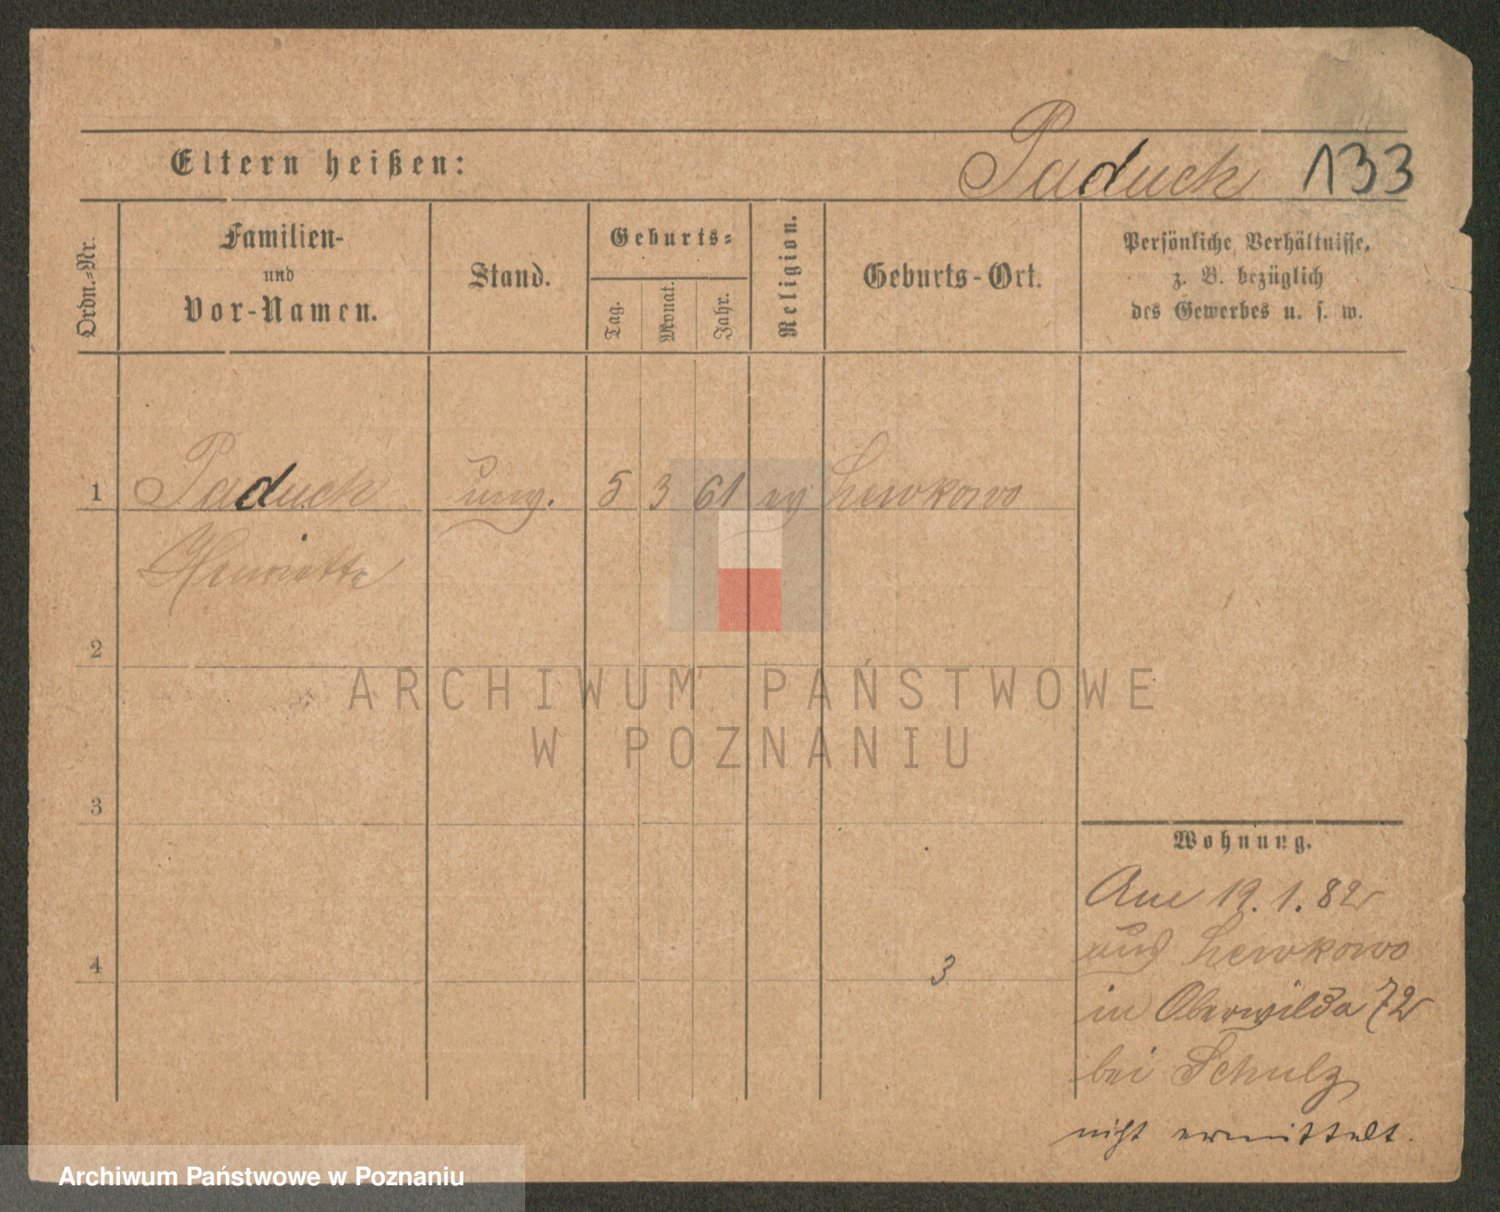 Eltern heißen: Paduck 133
Ordn.-Nr.
Familien-
und
Vor-Namen.
Stand.
Geburts-
Tag.
Monat.
Jahr.
Religion.
Geburts-Ort.
Persönliche Verhältnisse,
z. B. bezüglich
des Gewerbes u. s. w.
1 Paduck ung. 5 3 61 ev Lewkowo
Henriette
2
ARCHIWUM PAŃSTWOWE
W POZNANIU
3
Wohnung.
Am 19. 1. 82
aus Lewkowo
4 3
in Oberwilda 72
bei Schulz
nicht ermittelt.
Archiwum Państwowe w Poznaniu